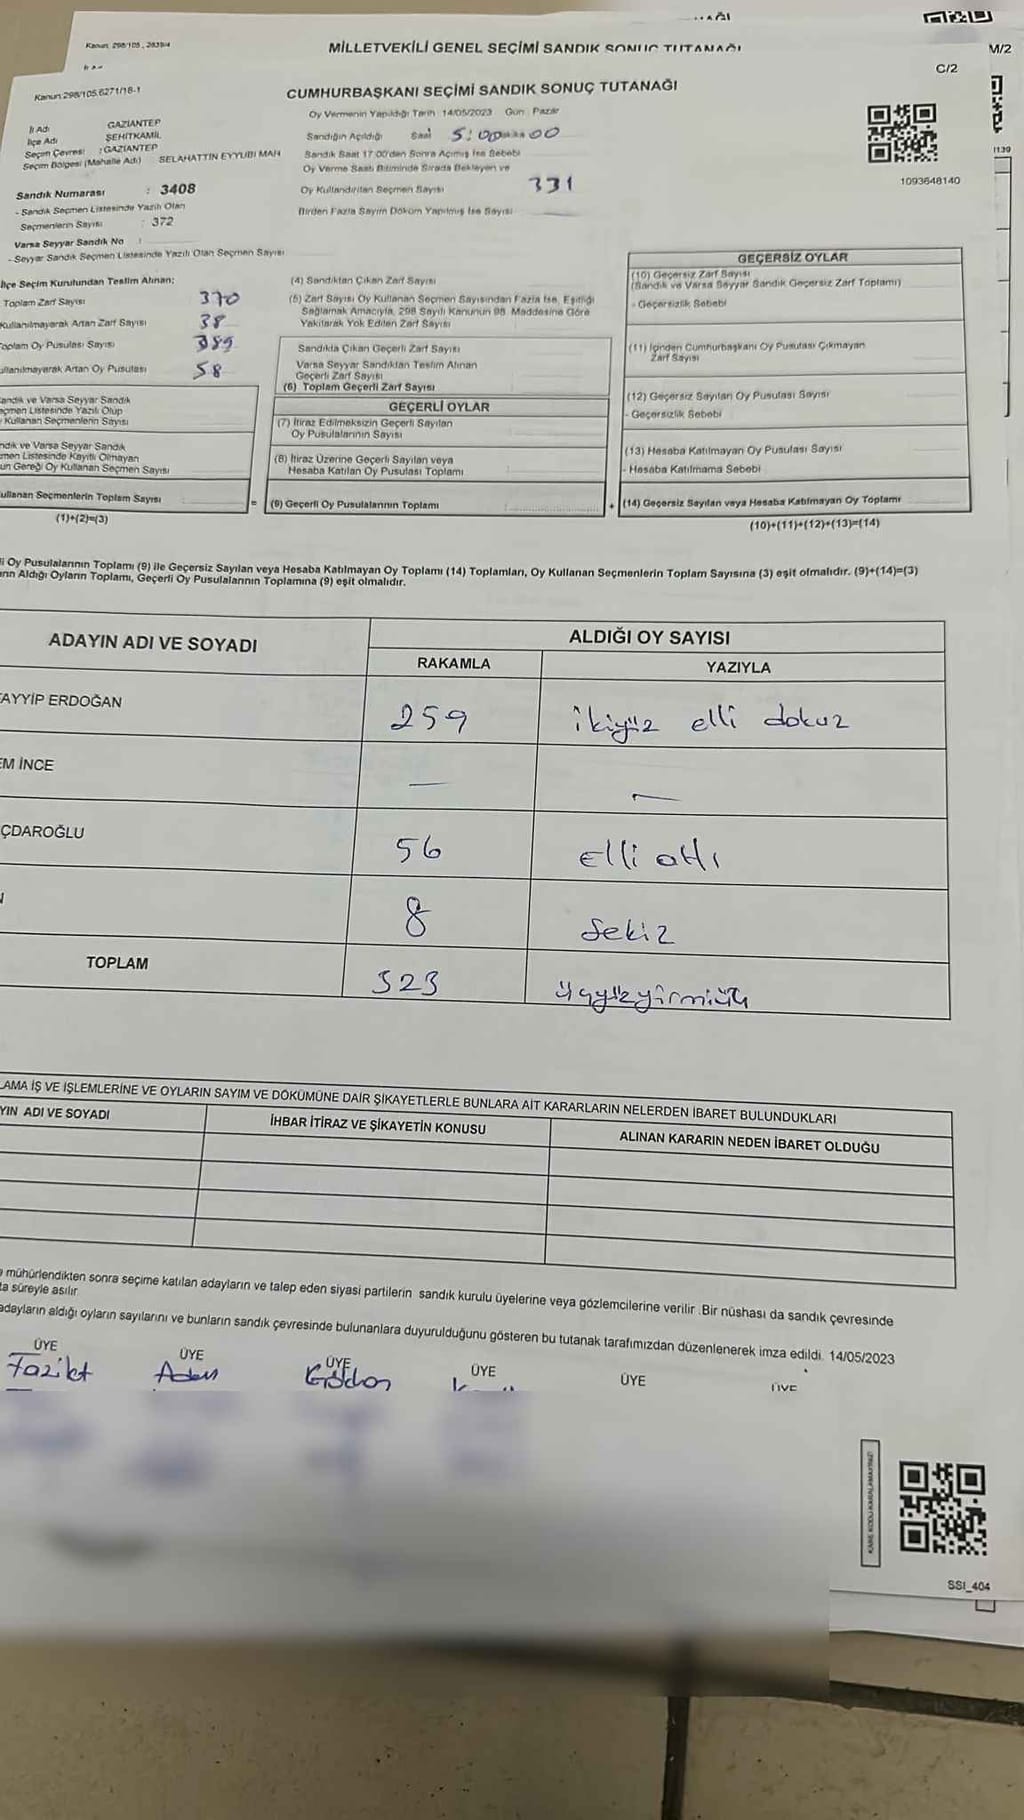 Kanun 298/105, 2839/4
MİLLETVEKİLİ GENEL SEÇİMİ SANDIK SONUÇ TUTANAĞI
M/2
Kanun 298/105,6271/18-1
CUMHURBAŞKANI SEÇİMİ SANDIK SONUÇ TUTANAĞI
C/2
Oy Vermenin Yapıldığı Tarih 14/05/2023 Gün : Pazar
İl Adı GAZİANTEP
İlçe Adı ŞEHİTKAMİL
Seçim Çevresi : GAZİANTEP
Seçim Bölgesi (Mahalle Adı) SELAHATTİN EYYUBİ MAH
Sandık Numarası : 3408
- Sandık Seçmen Listesinde Yazılı Olan
Seçmenlerin Sayısı : 372
Varsa Seyyar Sandık No :
- Seyyar Sandık Seçmen Listesinde Yazılı Olan Seçmen Sayısı
Sandığın Açıldığı Saat 5:00 dakika 00
Sandık Saat 17.00'den Sonra Açılmış İse Sebebi
Oy Verme Saati Bitiminde Sırada Bekleyen ve
Oy Kullandırılan Seçmen Sayısı 331
Birden Fazla Sayım Döküm Yapılmış İse Sayısı
1093648140
1139
İlçe Seçim Kurulundan Teslim Alınan;
Toplam Zarf Sayısı 370
Kullanılmayarak Artan Zarf Sayısı 38
Toplam Oy Pusulası Sayısı 389
ullanılmayarak Artan Oy Pusulası 58
andık ve Varsa Seyyar Sandık
eçmen Listesinde Yazılı Olup
Kullanan Seçmenlerin Sayısı
ndık ve Varsa Seyyar Sandık
men Listesinde Kayıtlı Olmayan
un Gereği Oy Kullanan Seçmen Sayısı
ullanan Seçmenlerin Toplam Sayısı
(1)+(2)=(3)
(4) Sandıktan Çıkan Zarf Sayısı
(5) Zarf Sayısı Oy Kullanan Seçmen Sayısından Fazla İse, Eşitliği
Sağlamak Amacıyla, 298 Sayılı Kanunun 98. Maddesine Göre
Yakılarak Yok Edilen Zarf Sayısı
Sandıkta Çıkan Geçerli Zarf Sayısı
Varsa Seyyar Sandıktan Teslim Alınan
Geçerli Zarf Sayısı
(6) Toplam Geçerli Zarf Sayısı
GEÇERLİ OYLAR
(7) İtiraz Edilmeksizin Geçerli Sayılan
Oy Pusulalarının Sayısı
(8) İtiraz Üzerine Geçerli Sayılan veya
Hesaba Katılan Oy Pusulası Toplamı
= (9) Geçerli Oy Pusulalarının Toplamı :
GEÇERSİZ OYLAR
(10) Geçersiz Zarf Sayısı
(Sandık ve Varsa Seyyar Sandık Geçersiz Zarf Toplamı)
- Geçersizlik Sebebi
(11) İçinden Cumhurbaşkanı Oy Pusulası Çıkmayan
Zarf Sayısı
(12) Geçersiz Sayılan Oy Pusulası Sayısı
- Geçersizlik Sebebi
(13) Hesaba Katılmayan Oy Pusulası Sayısı
- Hesaba Katılmama Sebebi
+ (14) Geçersiz Sayılan veya Hesaba Katılmayan Oy Toplamı
(10)+(11)+(12)+(13)=(14)
li Oy Pusulalarının Toplamı (9) ile Geçersiz Sayılan veya Hesaba Katılmayan Oy Toplamı (14) Toplamları, Oy Kullanan Seçmenlerin Toplam Sayısına (3) eşit olmalıdır. (9)+(14)=(3)
arın Aldığı Oyların Toplamı, Geçerli Oy Pusulalarının Toplamına (9) eşit olmalıdır.
ADAYIN ADI VE SOYADI
ALDIĞI OY SAYISI
RAKAMLA YAZIYLA
TAYYİP ERDOĞAN 259 ikiyüz elli dokuz
EM İNCE — —
ÇDAROĞLU 56 Elli altı
N 8 Sekiz
TOPLAM 323 üçyüzyirmiüç
LAMA İŞ VE İŞLEMLERİNE VE OYLARIN SAYIM VE DÖKÜMÜNE DAİR ŞİKAYETLERLE BUNLARA AİT KARARLARIN NELERDEN İBARET BULUNDUKLARI
YIN ADI VE SOYADI İHBAR İTİRAZ VE ŞİKAYETİN KONUSU ALINAN KARARIN NEDEN İBARET OLDUĞU
e mühürlendikten sonra seçime katılan adayların ve talep eden siyasi partilerin sandık kurulu üyelerine veya gözlemcilerine verilir. Bir nüshası da sandık çevresinde
ta süreyle asılır
adayların aldığı oyların sayılarını ve bunların sandık çevresinde bulunanlara duyurulduğunu gösteren bu tutanak tarafımızdan düzenlenerek imza edildi. 14/05/2023
ÜYE ÜYE ÜYE ÜYE ÜYE ÜYE
Gökhan
KARE KODU KARALAMAYINIZ!
SSI_404